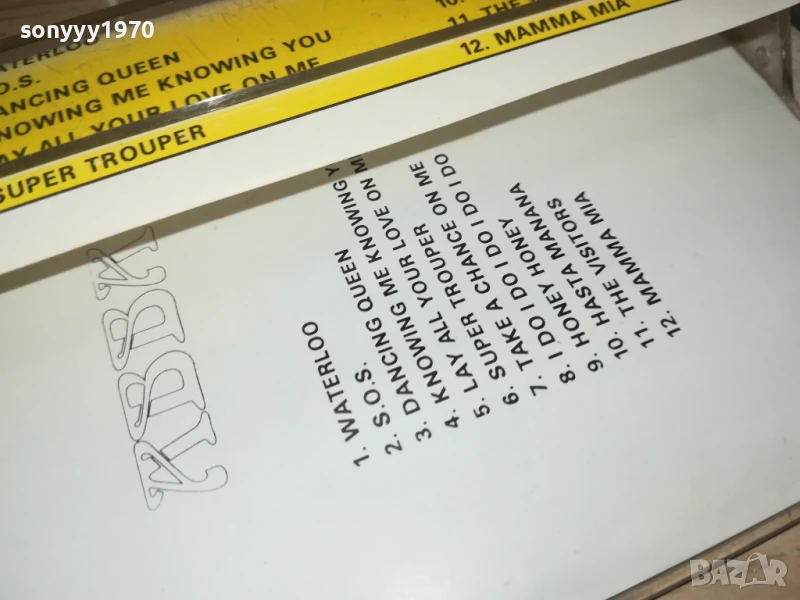 sonyyy1970
S.
DANCING QUEEN
KNOWING ME KNOWING YOU
LAY ALL YOUR LOVE ON ME
SUPER TROUPER
10.
11. THE
12. MAMMA MIA
ABBA
1. WATERLOO
2. S.O.S.
3. DANCING QUEEN
4. KNOWING ME KNOWING Y
5. LAY ALL YOUR LOVE ON M
6. SUPER TROUPER
7. TAKE A CHANCE ON ME
8. I DO I DO I DO I DO I DO
9. HONEY HONEY
10. HASTA MANANA
11. THE VISITORS
12. MAMMA MIA
BAZAR